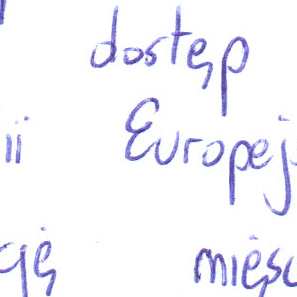 dostęp
ii Europej
cję mięs